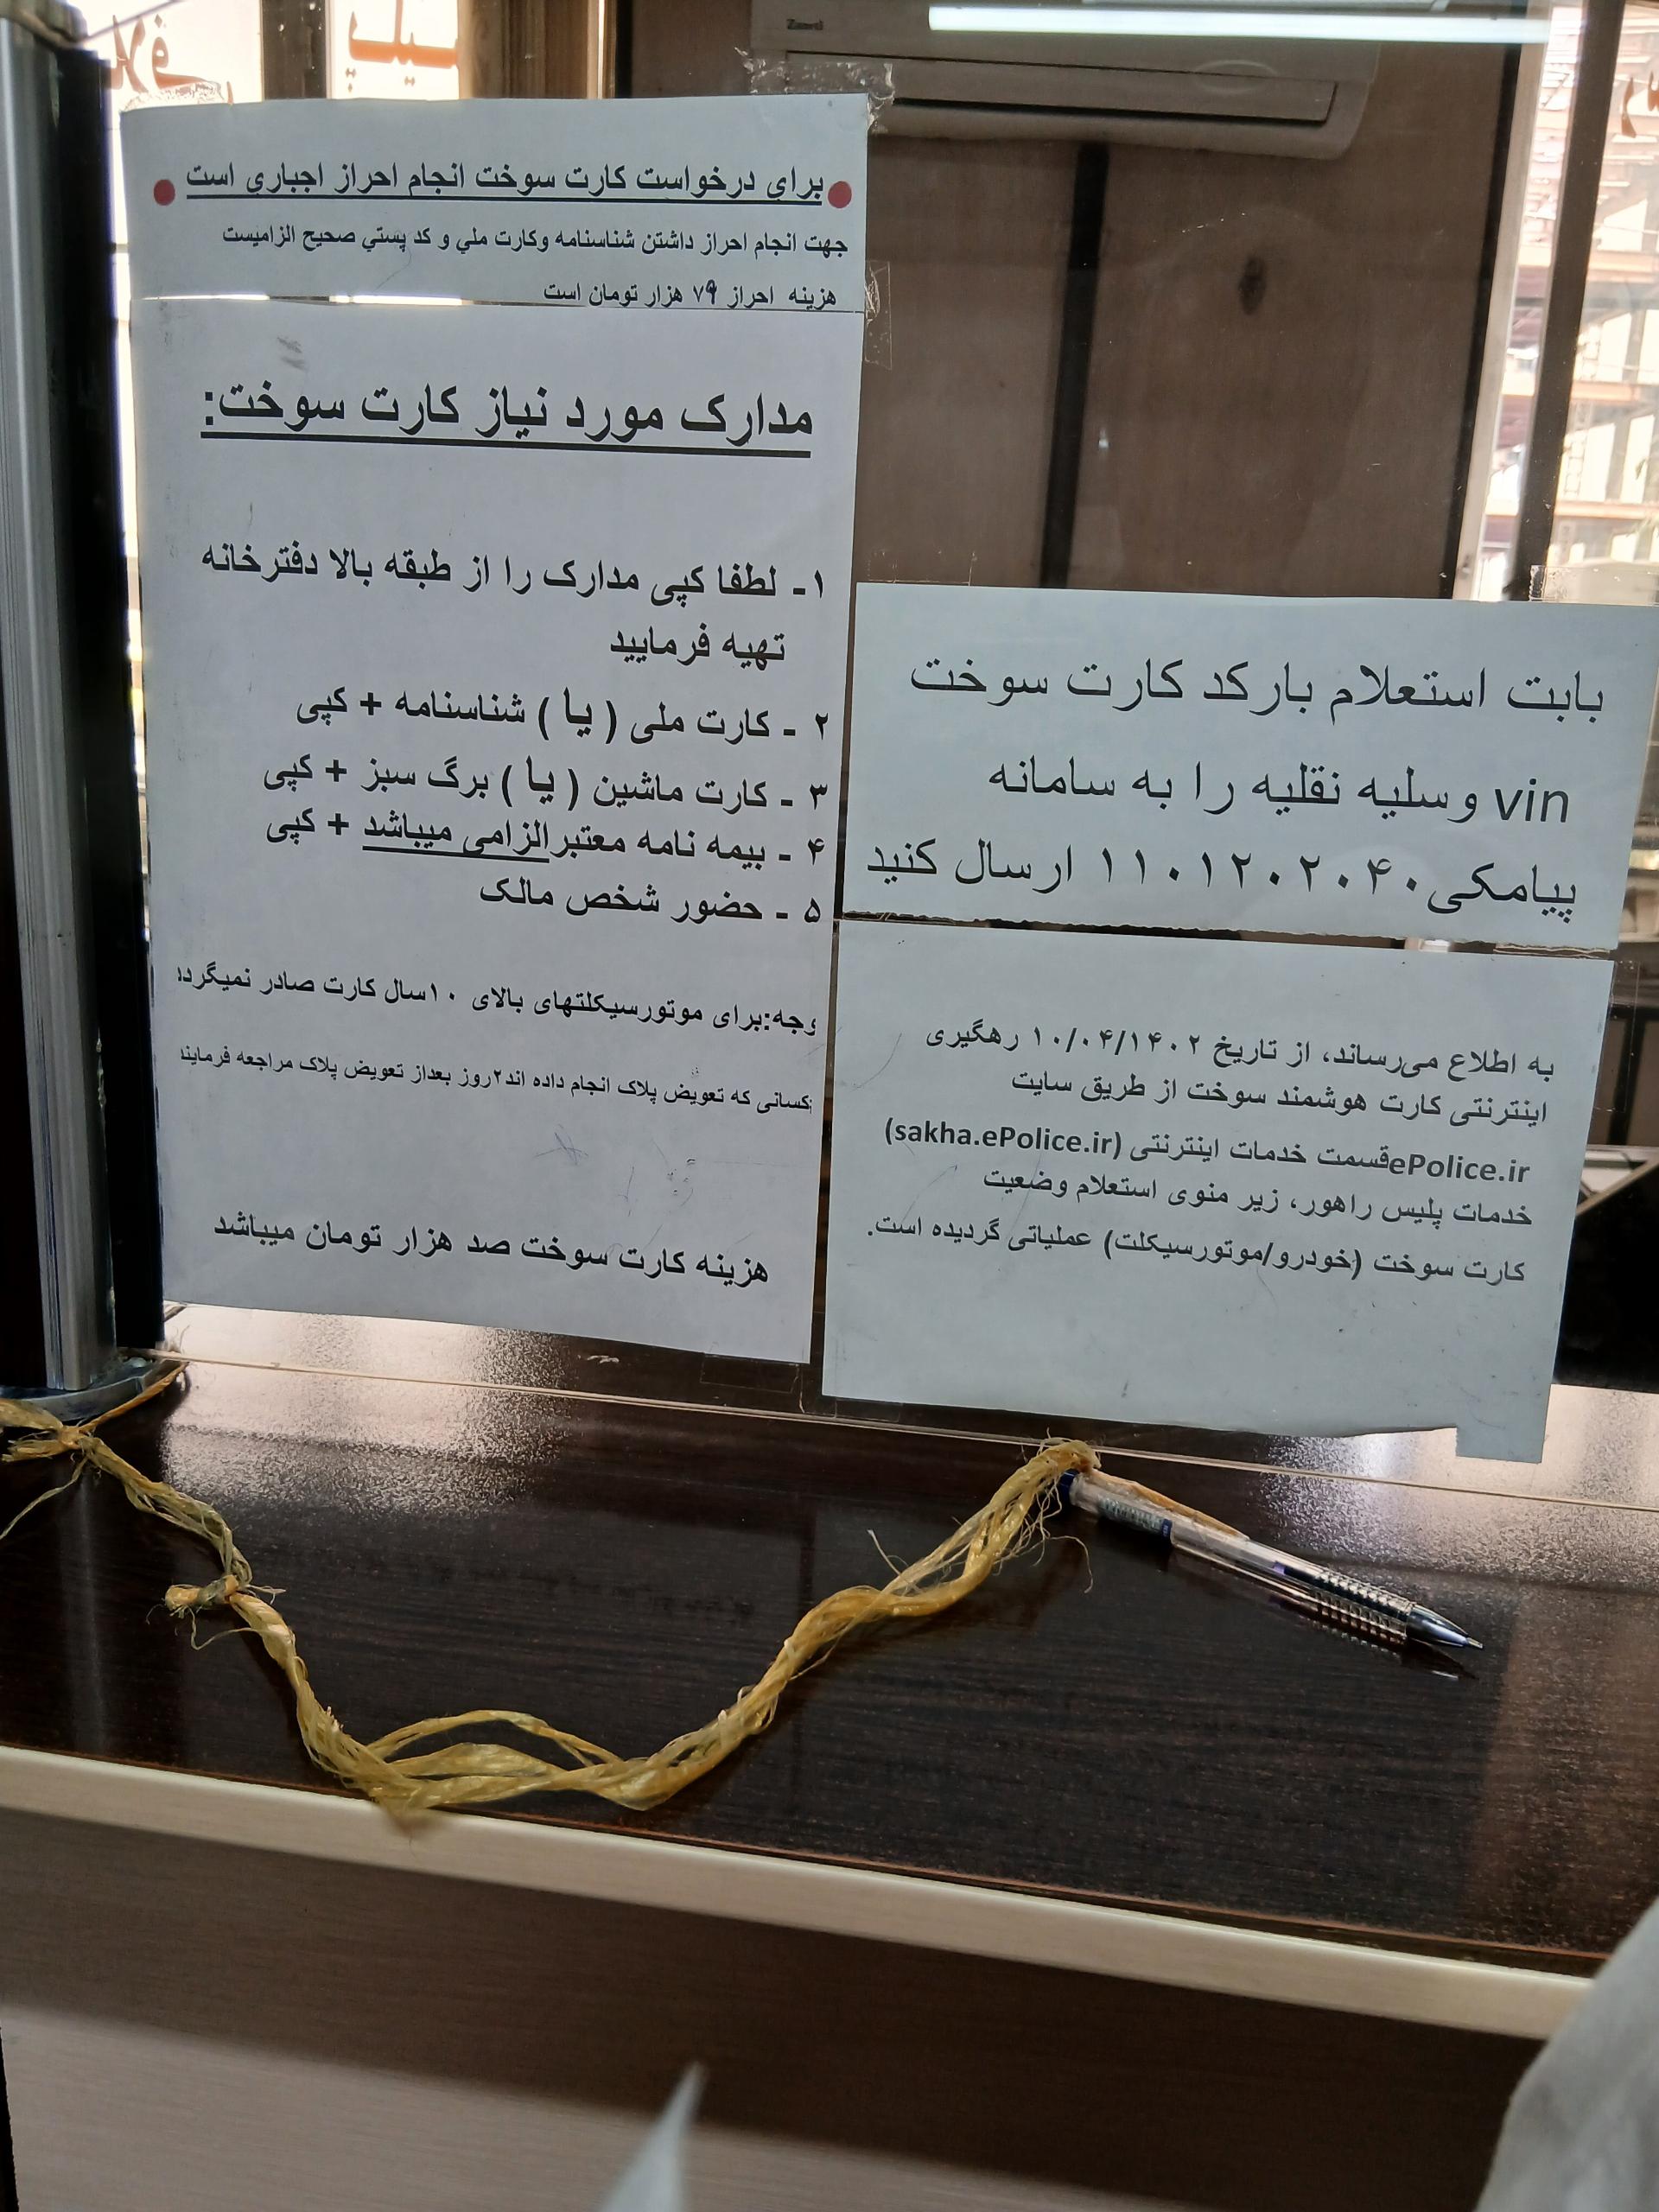 برای درخواست کارت سوخت انجام احراز اجباری است
جهت انجام احراز داشتن شناسنامه وکارت ملي و کد پستي صحیح الزامیست
هزینه احراز ۷۹ هزار تومان است
مدارک مورد نیاز کارت سوخت:
۱- لطفا کپی مدارک را از طبقه بالا دفترخانه
تهیه فرمایید
۲ - کارت ملی ( یا ) شناسنامه + کپی
۳ - کارت ماشین ( یا ) برگ سبز + کپی
۴ - بیمه نامه معتبرالزامی میباشد + کپی
۵ - حضور شخص مالک
وجه:برای موتورسیکلتهای بالای ۱۰سال کارت صادر نمیگردد
کسانی که تعویض پلاک انجام داده اند۲روز بعداز تعویض پلاک مراجعه فرمایند
هزینه کارت سوخت صد هزار تومان میباشد
بابت استعلام بارکد کارت سوخت
vin وسلیه نقلیه را به سامانه
پیامکی۱۱۰۱۲۰۲۰۴۰ ارسال کنید
به اطلاع می‌رساند، از تاریخ ۱۰/۰۴/۱۴۰۲ رهگیری
اینترنتی کارت هوشمند سوخت از طریق سایت
ePolice.irقسمت خدمات اینترنتی (sakha.ePolice.ir)
خدمات پلیس راهور، زیر منوی استعلام وضعیت
کارت سوخت (خودرو/موتورسیکلت) عملیاتی گردیده است.